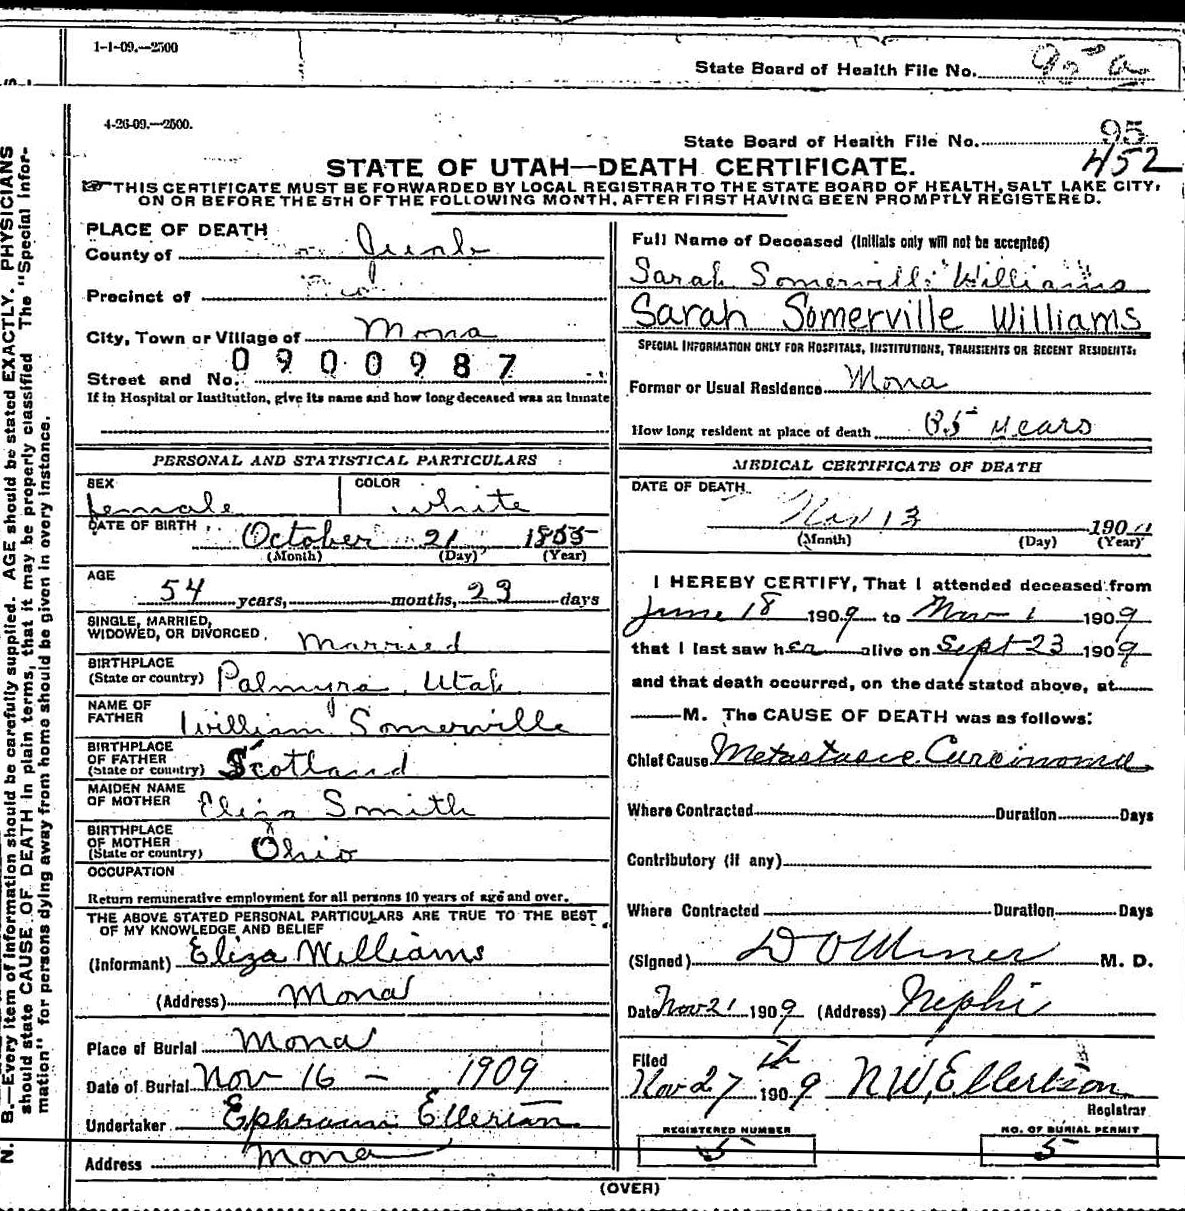 1-1-09.—2500
State Board of Health File No. 95 a
4-26-09.—2500.
State Board of Health File No. 95
452
STATE OF UTAH—DEATH CERTIFICATE.
THIS CERTIFICATE MUST BE FORWARDED BY LOCAL REGISTRAR TO THE STATE BOARD OF HEALTH, SALT LAKE CITY,
ON OR BEFORE THE 5TH OF THE FOLLOWING MONTH, AFTER FIRST HAVING BEEN PROMPTLY REGISTERED.
PLACE OF DEATH
County of Juab
Precinct of
City, Town or Village of Mona
0900987
Street and No.
If in Hospital or Institution, give its name and how long deceased was an inmate
PERSONAL AND STATISTICAL PARTICULARS
SEX
female
COLOR
white
DATE OF BIRTH
October 21 1855
(Month) (Day) (Year)
AGE
54 years, months, 23 days
SINGLE, MARRIED,
WIDOWED, OR DIVORCED Married
BIRTHPLACE
(State or country) Palmyra, Utah
NAME OF
FATHER William Somerville
BIRTHPLACE
OF FATHER
(State or country) Scotland
MAIDEN NAME
OF MOTHER Eliza Smith
BIRTHPLACE
OF MOTHER
(State or country) Ohio
OCCUPATION
Return remunerative employment for all persons 10 years of age and over.
THE ABOVE STATED PERSONAL PARTICULARS ARE TRUE TO THE BEST
OF MY KNOWLEDGE AND BELIEF
(Informant) Eliza Williams
(Address) Mona
Place of Burial Mona
Date of Burial Nov 16 - 1909
Undertaker Ephraim Ellertson
Address Mona
Full Name of Deceased (Initials only will not be accepted)
Sarah Somerville Williams
Sarah Somerville Williams
SPECIAL INFORMATION ONLY FOR HOSPITALS, INSTITUTIONS, TRANSIENTS OR RECENT RESIDENTS:
Former or Usual Residence Mona
How long resident at place of death years
MEDICAL CERTIFICATE OF DEATH
DATE OF DEATH
Nov 13 190
(Month) (Day) (Year)
I HEREBY CERTIFY, That I attended deceased from
June 18 1909 to Nov 1 1909
that I last saw her alive on Sept 23 1909
and that death occurred, on the date stated above, at
M. The CAUSE OF DEATH was as follows:
Chief Cause Metastasic Carcinoma
Where Contracted Duration Days
Contributory (if any)
Where Contracted Duration Days
(Signed) D O Miner M. D.
Date Nov 21 1909 (Address) Nephi
Filed
Nov 27th 1909 N W, Ellertson
Registrar
REGISTERED NUMBER
5
NO. OF BURIAL PERMIT
5
(OVER)
N. B.—Every item of information should be carefully supplied. AGE should be stated EXACTLY. PHYSICIANS
should state CAUSE OF DEATH in plain terms, that it may be properly classified. The "Special Infor-
mation" for persons dying away from home should be given in every instance.